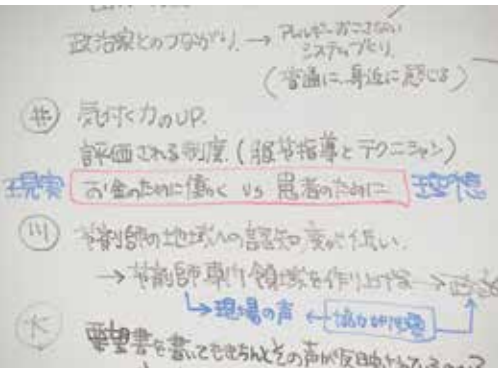 政治家とのつながり. → アレルギーおこさない
システムづくり.
(普通に、身近に感じる)
共 気付く力のUP.
評価される制度. (服薬指導とテクニシャン)
現実 お金のために働く vs 患者のために 理想
川 薬剤師の地域への認知度が低い.
→ 薬剤師専門領域を作り上げる →
↳ 現場の声 ← 協力が必要
要望書を書いてもきちんとその声が反映